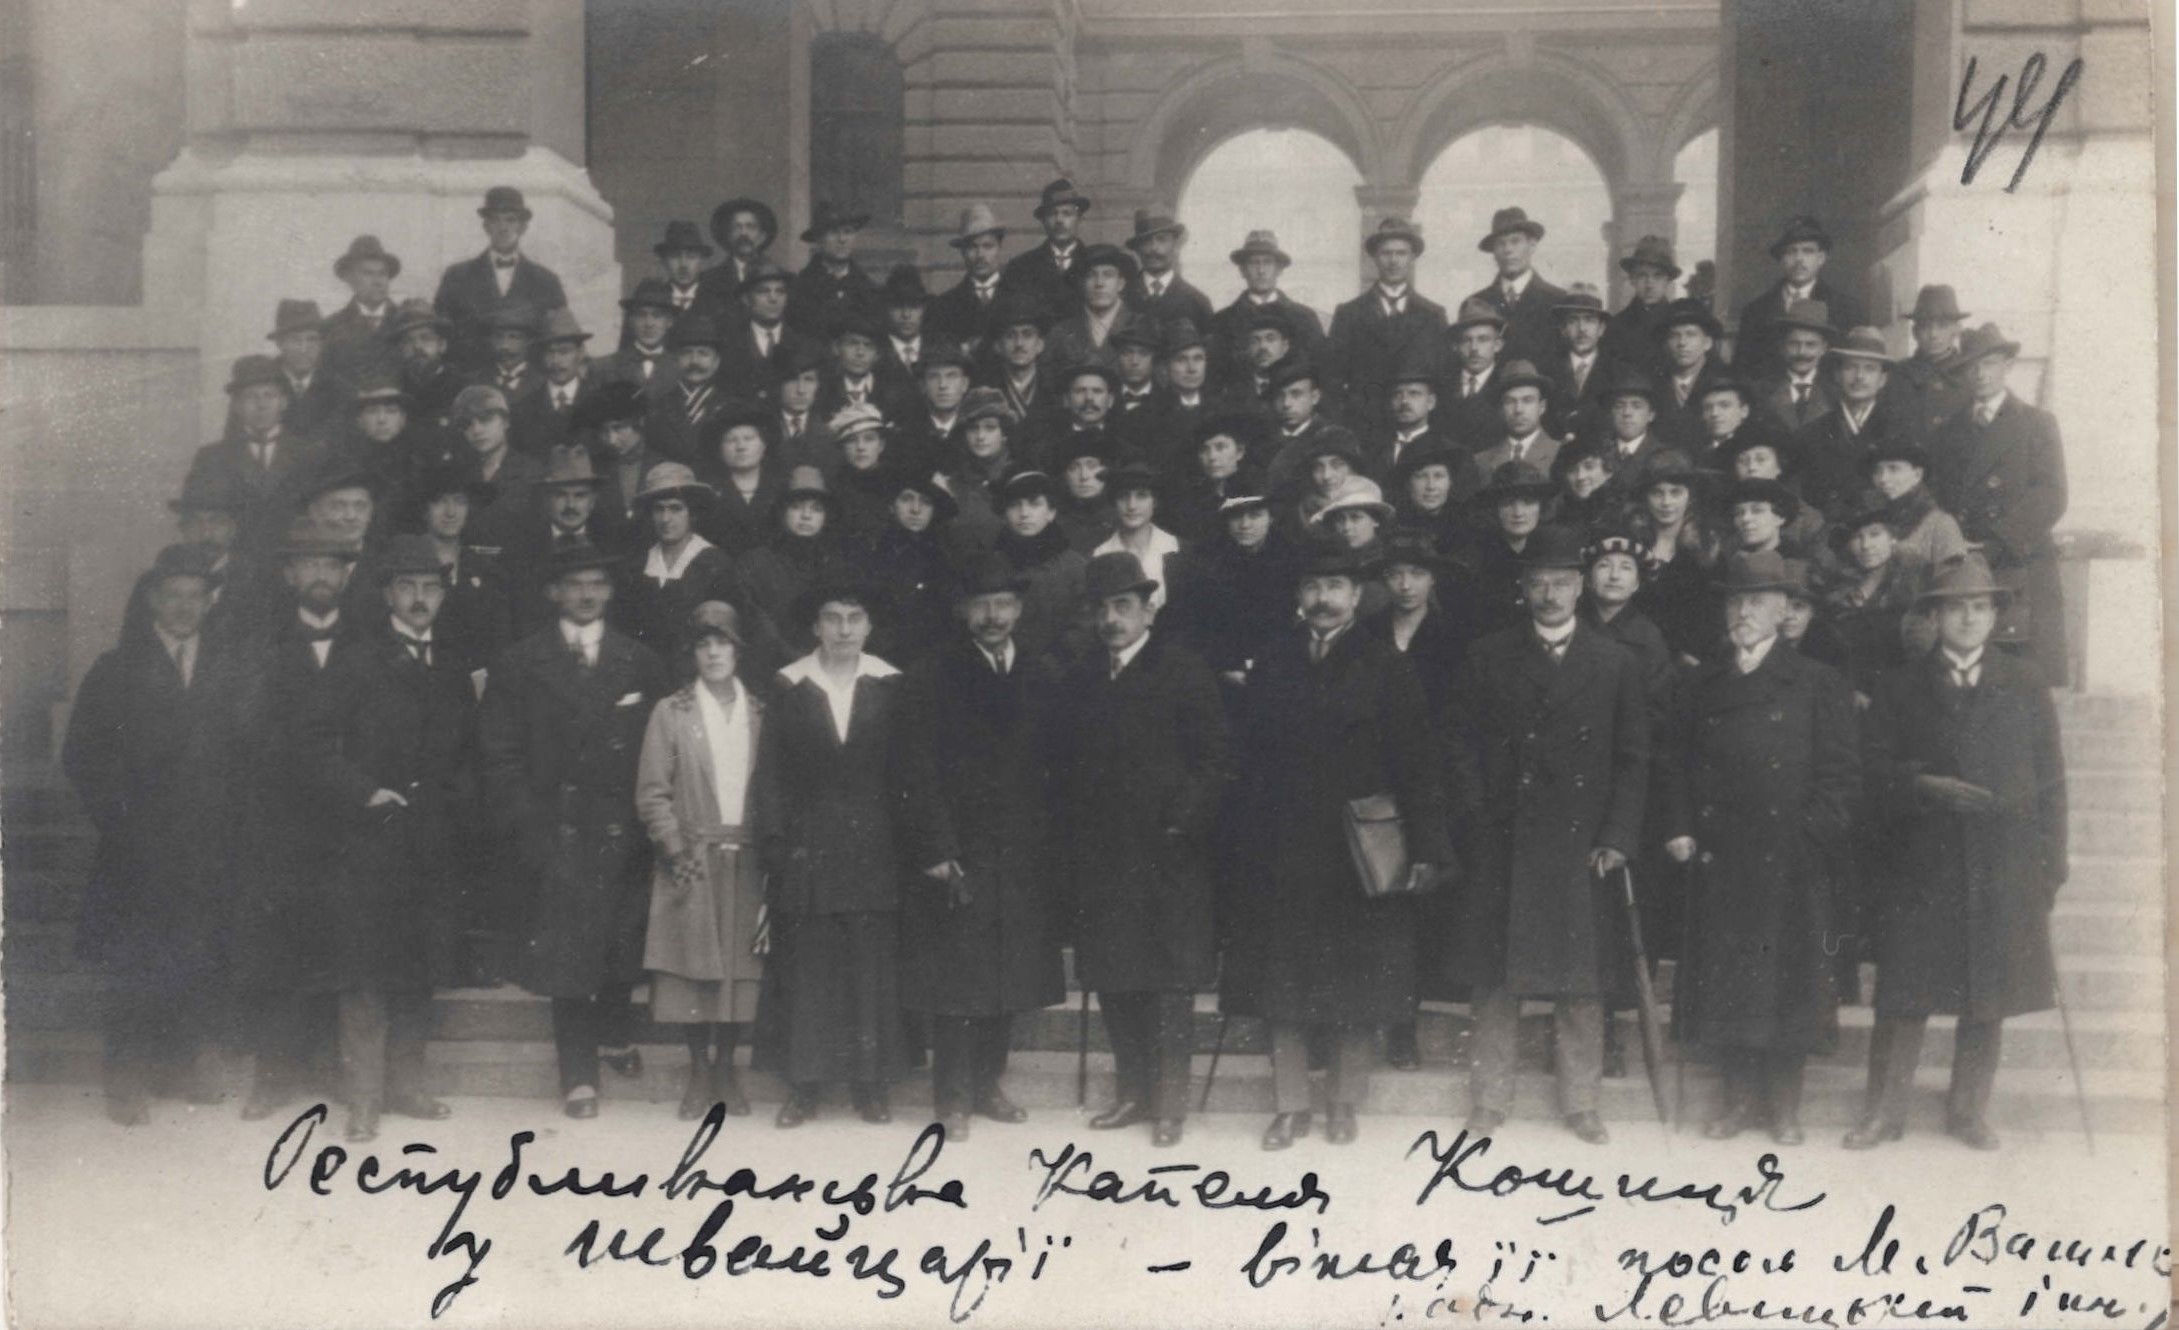 44
Републиканська Капеля Кошиця
у Швейцарії – вітає її посол М. Василь
Левицький і ин.